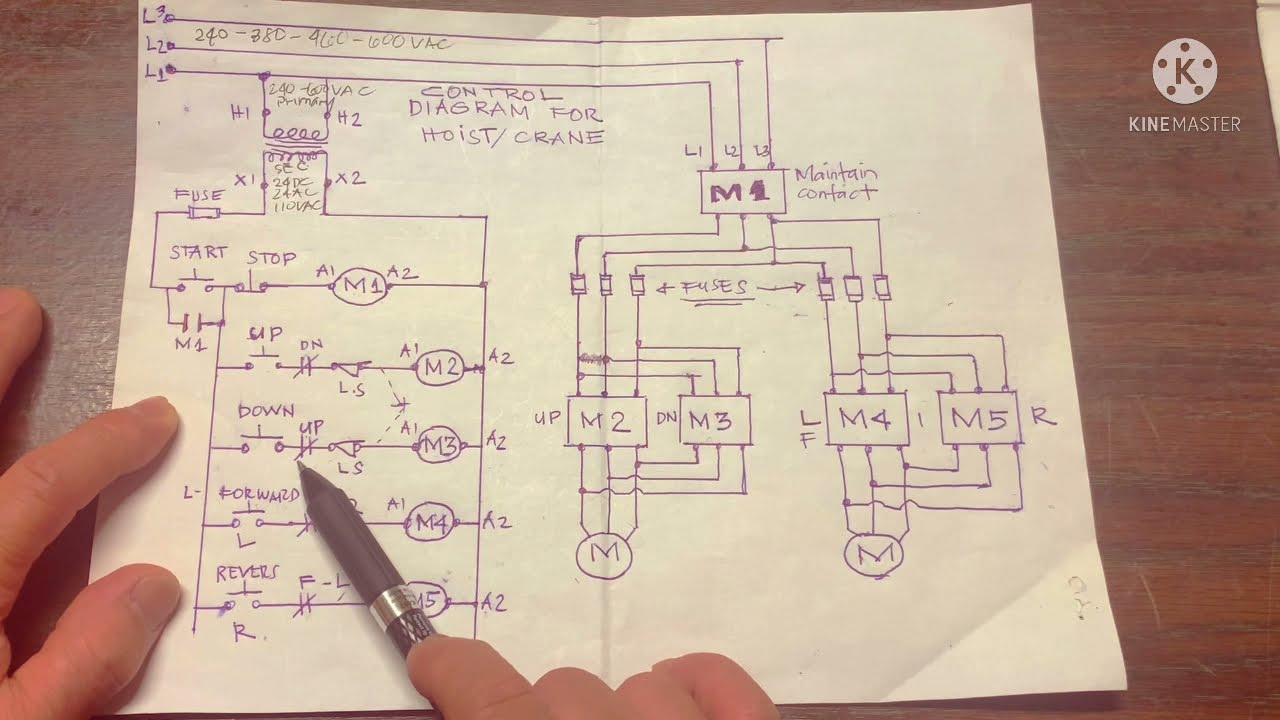 L3
240-380-460-600VAC
L2
L1
240-600VAC
Primary
H1 H2
CONTROL
DIAGRAM FOR
HOIST/CRANE
K
KINEMASTER
L1 L2 L3
M1
Maintain
contact
X1 X2
SEC
24DC
24AC
110VAC
FUSE
START STOP
A1 M1 A2
M1
← FUSES →
UP DN L.S A1 M2 A2
DOWN UP LS A1 M3 A2
UP M2 DN M3
L
F
M4 M5 R
L-
FORWARD
L
A1 M4 A2
REVERS
R
F-L
M5 A2
M M